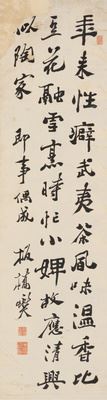 年來性癖武夷茶風味溫香比
豆花融雪烹時忙小婢故應清興
似陶家
即事偶成 板橋燮